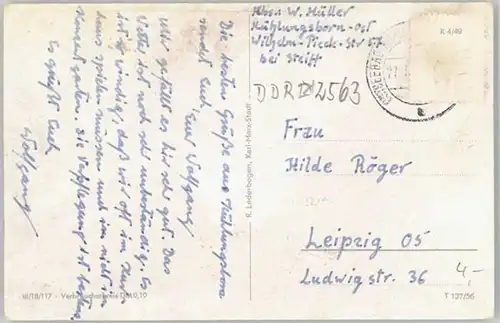 Die besten Grüße aus Kühlungsborn
sendet Euch
Euer Wolfgang
Mir gefällt es hier sehr gut. Das
Wetter ist noch sehr unbeständig. Es
ist so windig, daß wir oft im Kur-
haus spielen müssen und im nicht im
Konzertgarten. Die Verpflegung ist bestens.
Es grüßt Euch
Wolfgang
Abs. W. Müller
Kühlungsborn-Ost
Wilhelm-Pieck-Str. 57
bei Steiff
DDR
2563
K 4/49
Frau
Hilde Röger
Leipzig O5
Ludwigstr. 36
4,-
R. Lederbogen, Karl-Marx-Stadt
III/18/117 - Verbraucherpreis DM 0,10
T 127/56